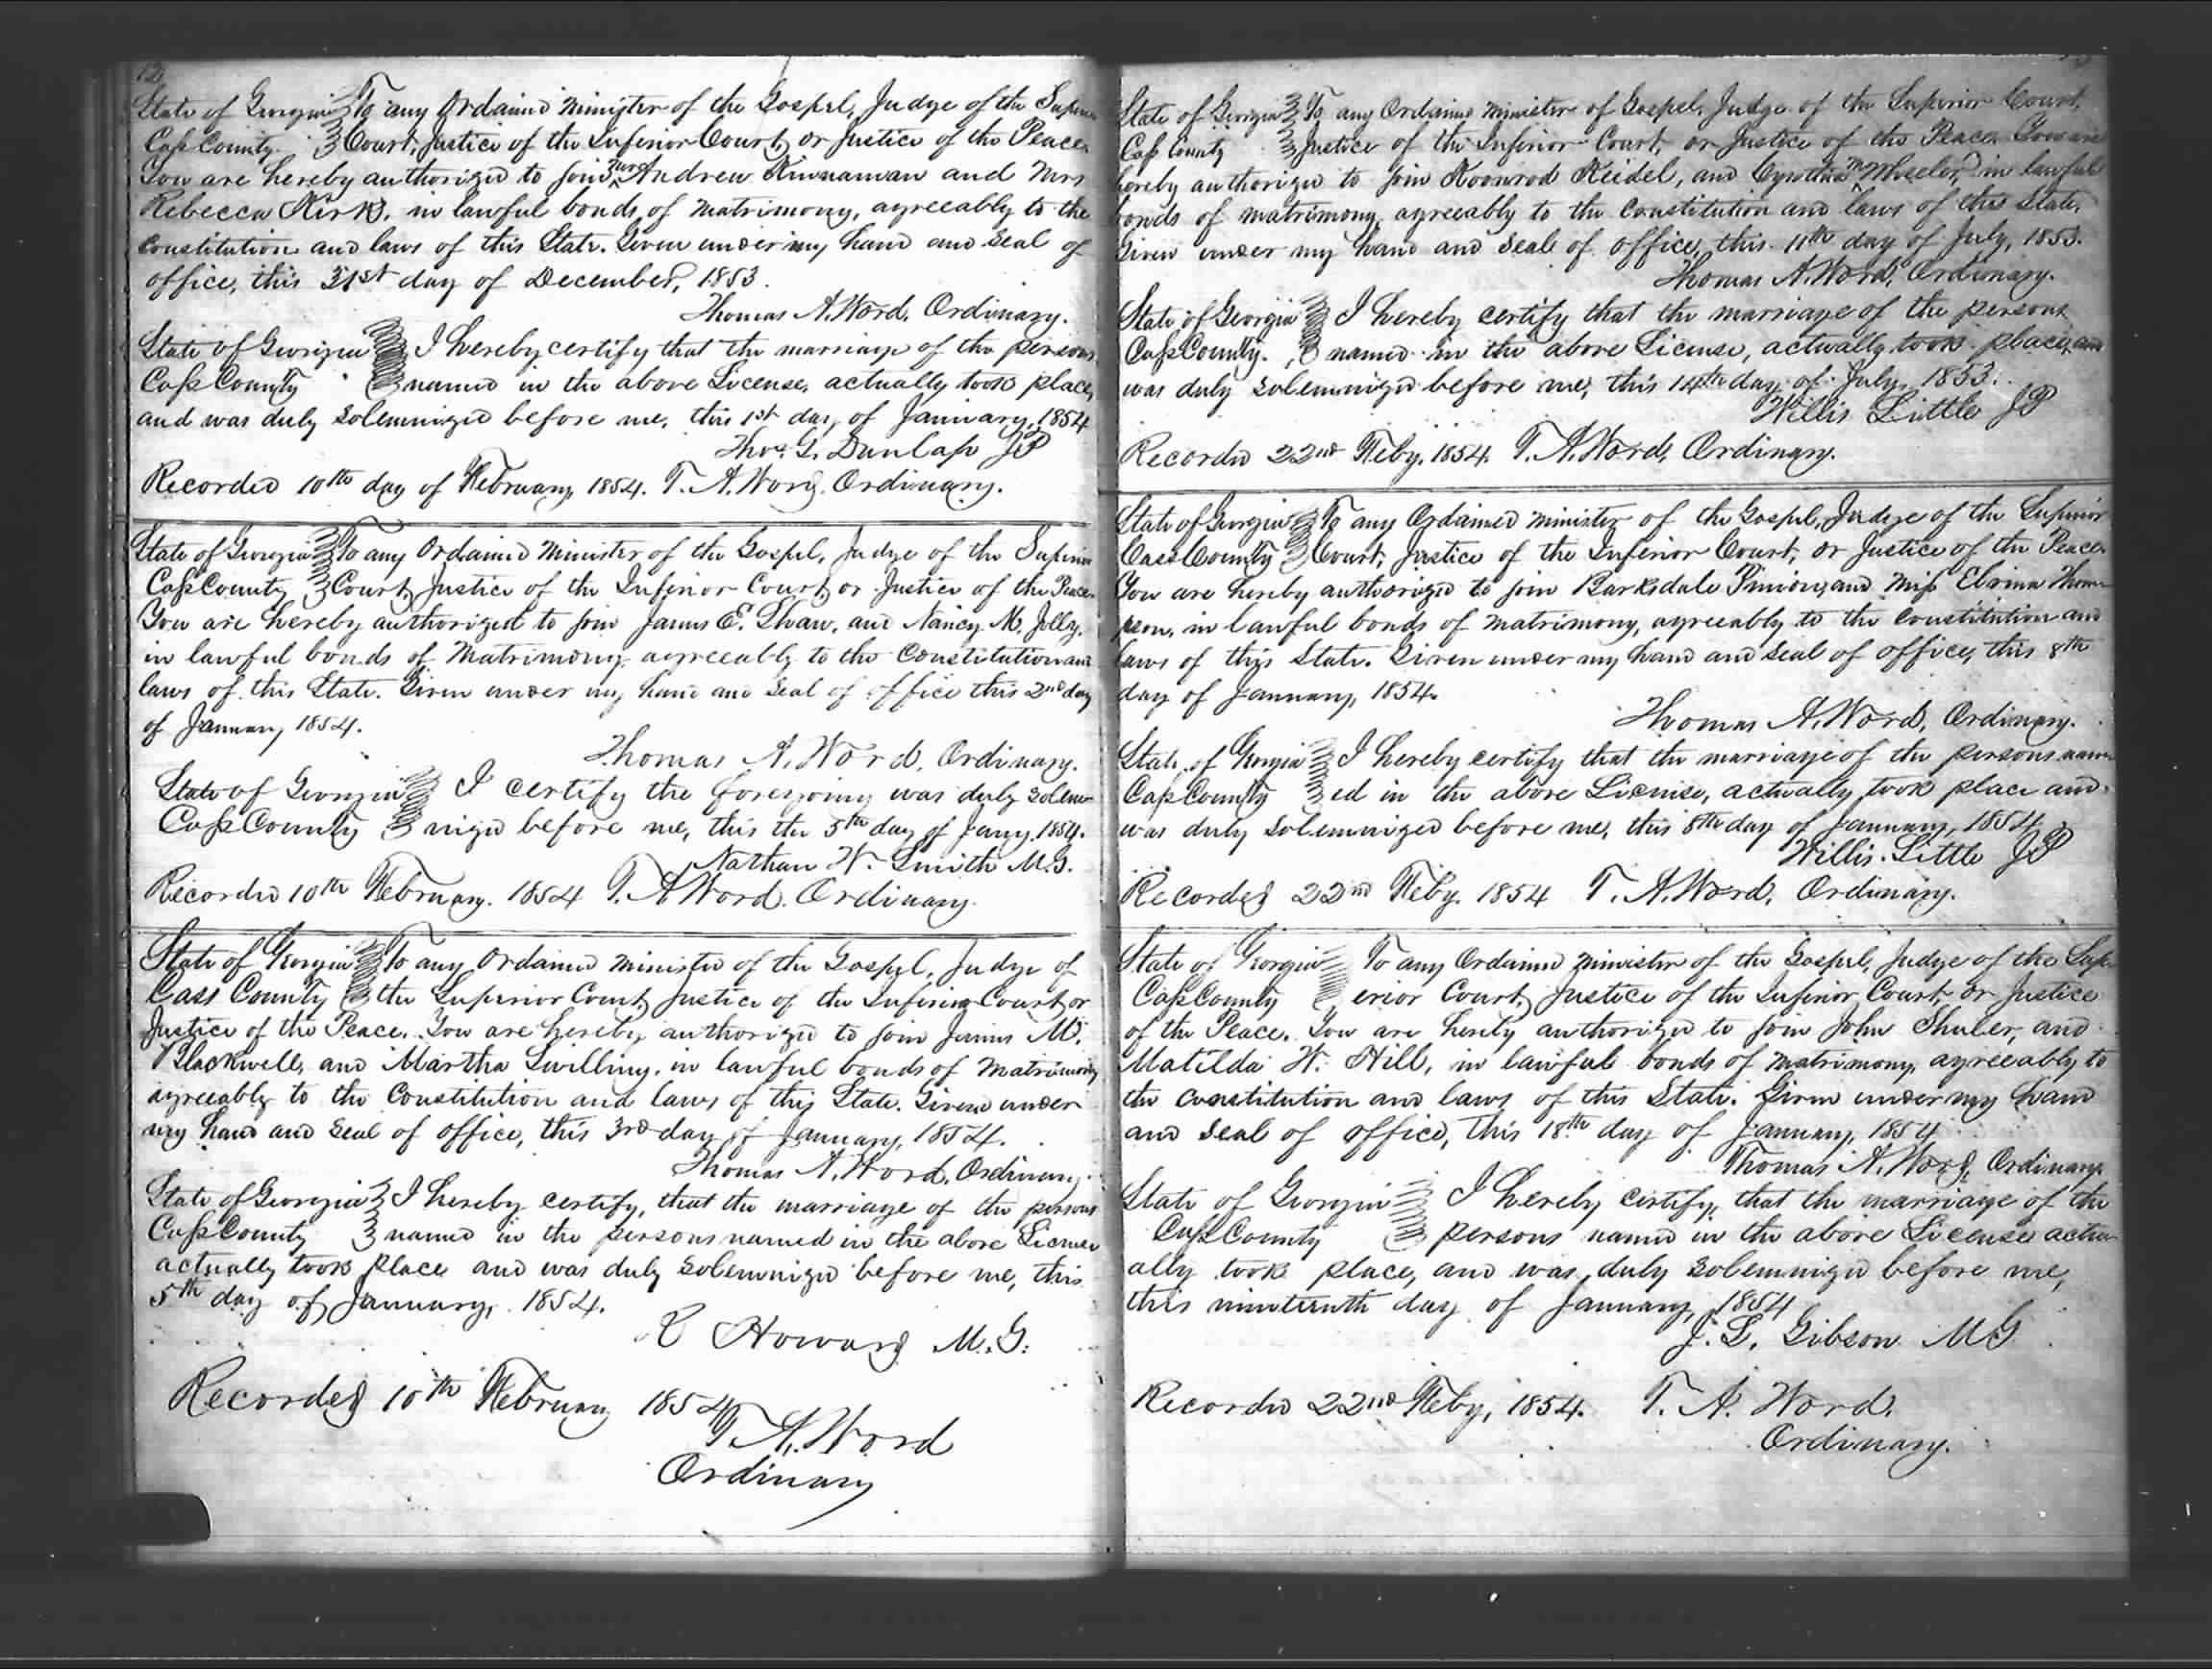 12
State of Georgia To any Ordained Minister of the Gospel, Judge of the Superior
Cass County. Court, Justice of the Inferior Court, or Justice of the Peace.
You are hereby authorized to join Andrew Kinnaman and Mrs
Rebecca Kirk, in lawful bonds of Matrimony, agreeably to the
constitution and laws of this State. Given under my hand and seal of
office, this 31st day of December, 1853.
Thomas A. Word, Ordinary.
State of Georgia I hereby certify that the marriage of the persons
Cass County named in the above License, actually took place,
and was duly solemnized before me, this 1st day of January, 1854
Thos. G. Dunlap JP
Recorded 10th day of February, 1854. T. A. Word, Ordinary.
State of Georgia To any Ordained Minister of the Gospel, Judge of the Superior
Cass County Court, Justice of the Inferior Court, or Justice of the Peace.
You are hereby authorized to join James E. Shaw, and Nancy M. Jolly,
in lawful bonds of Matrimony, agreeably to the Constitution and
laws of this State. Given under my hand and seal of office this 2nd day
of January 1854.
Thomas A. Word, Ordinary.
State of Georgia I certify the foregoing was duly solem-
Cass County nized before me, this the 5th day of Jany. 1854.
Nathan W. Smith M.G.
Recorded 10th February. 1854 T. A. Word. Ordinary.
State of Georgia To any Ordained Minister of the Gospel, Judge of
Cass County the Superior Court, Justice of the Inferior Court, or
Justice of the Peace. You are hereby authorized to join James M.
Blackwell, and Martha Swilling, in lawful bonds of Matrimony
agreeably to the Constitution and laws of this State. Given under
my hand and seal of office, this 3rd day of January, 1854.
Thomas A. Word, Ordinary.
State of Georgia I hereby certify, that the marriage of the persons
Cass County named in the persons named in the above License
actually took place and was duly solemnized before me, this
5th day of January, 1854.
R Howard M.G.
Recorded 10th February 1854
T. A. Word
Ordinary
State of Georgia To any Ordained Minister of Gospel, Judge of the Superior Court,
Cass County Justice of the Inferior Court, or Justice of the Peace. You are
hereby authorized to join Koonrod Keidel, and Cynthia M Wheeler, in lawful
bonds of matrimony, agreeably to the constitution and laws of this State.
Given under my hand and seal of office, this 11th day of July, 1853.
Thomas A. Word, Ordinary.
State of Georgia I hereby certify that the marriage of the persons
Cass County. named in the above License, actually took place, and
was duly solemnized before me, this 14th day of July, 1853.
Willis Little JP
Recorded 22nd Feby. 1854. T. A. Word, Ordinary.
State of Georgia To any Ordained Minister of the Gospel, Judge of the Superior
Cass County Court, Justice of the Inferior Court, or Justice of the Peace.
You are hereby authorized to join Barksdale Pinion, and Miss Elvina Thom-
pson, in lawful bonds of Matrimony, agreeably to the constitution and
laws of this State. Given under my hand and seal of office, this 8th
day of January, 1854.
Thomas A. Word, Ordinary.
State of Georgia I hereby certify that the marriage of the persons nam-
Cass County ed in the above License, actually took place and
was duly solemnized before me, this 8th day of January, 1854.
Willis Little JP
Recorded 22nd Feby. 1854 T. A. Word, Ordinary.
State of Georgia To any Ordained Minister of the Gospel, Judge of the Sup-
Cass County erior Court, Justice of the Inferior Court, or Justice
of the Peace. You are hereby authorized to join John Shuler, and
Matilda W. Hill, in lawful bonds of matrimony, agreeably to
the constitution and laws of this State. Given under my hand
and seal of office, this 18th day of January, 1854
Thomas A. Word, Ordinary.
State of Georgia I hereby certify, that the marriage of the
Cass County persons named in the above License actu-
ally took place, and was duly solemnized before me,
this nineteenth day of January, 1854
J. L. Gibson MG
Recorded 22nd Feby, 1854. T. A. Word.
Ordinary.